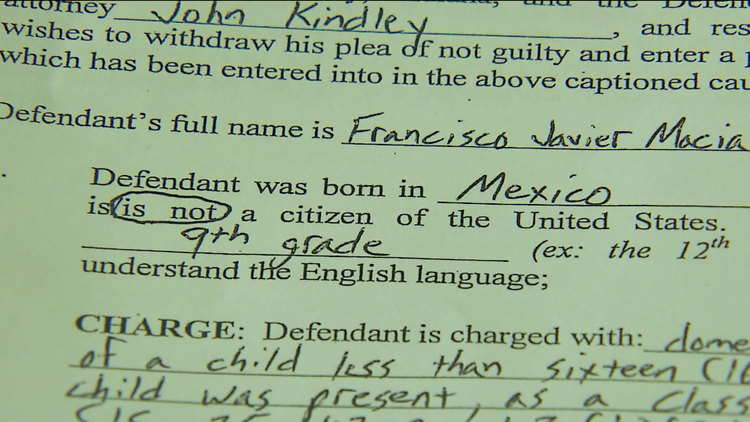 attorney John Kindley, and res
wishes to withdraw his plea of not guilty and enter a p
which has been entered into in the above captioned cau
Defendant's full name is Francisco Javier Macia
Defendant was born in Mexico
is/is not a citizen of the United States.
9th grade (ex: the 12th
understand the English language;
CHARGE: Defendant is charged with: dome
of a child less than sixteen (16
child was present, as a Class